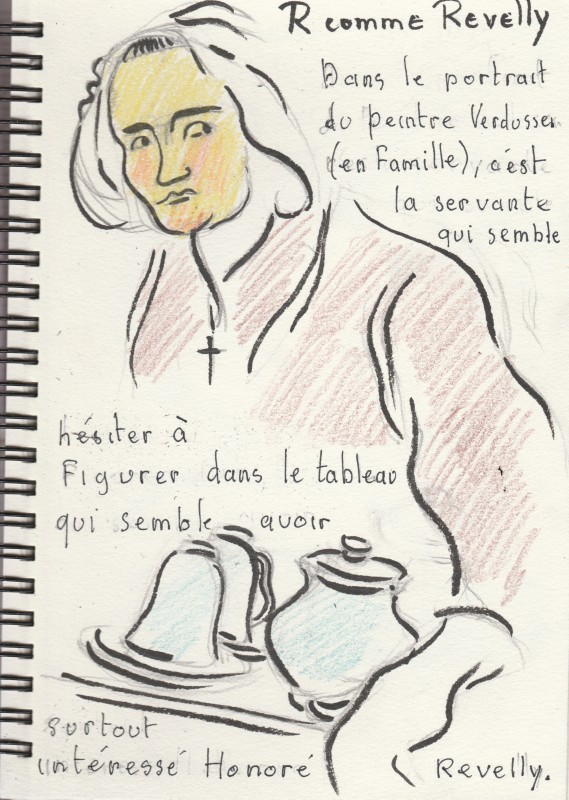 R comme Revelly
Dans le portrait
du peintre Verdussen
(en Famille), c'est
la servante
qui semble
hésiter à
Figurer dans le tableau
qui semble avoir
surtout
intéressé Honoré Revelly.